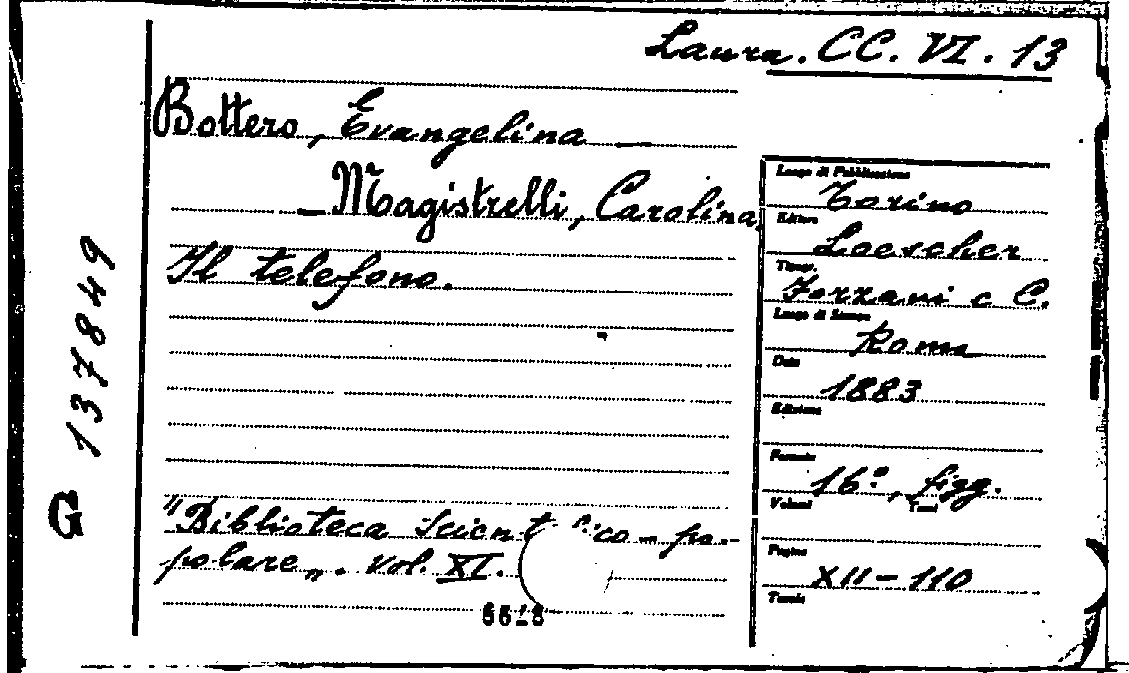 Laura. CC. VI. 13
Bottero, Evangelina
— Magistrelli, Carolina
Il telefono.
"Biblioteca scient ico-po-
polare„. vol. XI.
6618
G 137849
Luogo di Pubblicazione
Torino
Editore
Loescher
Tipogr.
Forzani e C.
Luogo di Stampa
Roma
Data
1883
Edizione
Formato
16°, figg.
Volumi
Pagine
XII-110
Tavole